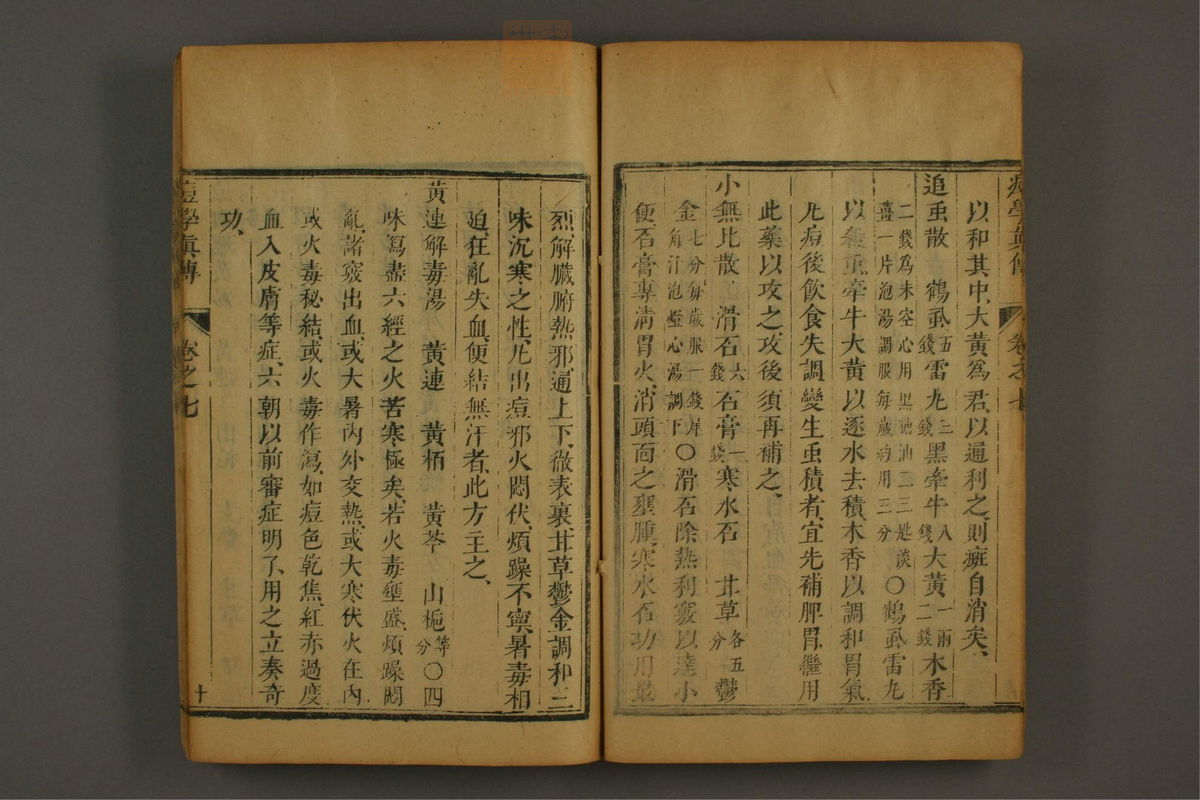 痘學眞傳 卷之七
以和其中、大黃爲君、以通利之、則癰自消矣、
追䖝散 鶴虱五錢 雷丸三錢 黑牽牛八錢 大黃一兩二錢 木香
二錢爲末空心用黑沙油二三匙淡
薑一片泡湯調服每歲約用三分 〇鶴虱雷丸
以殺䖝、牽牛大黃以逐水去積、木香以調和胃氣、
凡痘後飲食失調、變生䖝積者、宜先補脾胃、繼用
此藥以攻之、攻後須再補之、
小無比散 滑石六錢 石膏一錢 寒水石 甘草各五分 鬱
金七分每歲服一錢犀角解汁泡燈心湯調下〇滑石除熱利竅、以達小
便、石膏專淸胃火、消頭面之壅腫、寒水石功用最
烈、解臟腑熱邪、通上下、徹表裏、甘草鬱金調和三
味沉寒之性、凡出痘邪火悶伏、煩躁不寧、暑毒相
廹、狂亂失血、便結無汗者、此方主之、
黃連解毒湯 黃連 黃栢 黃芩 山梔等分〇四
味瀉盡六經之火、苦寒極矣、若火毒壅盛、煩躁悶
亂、諸竅出血、或大暑內外交熱、或大寒伏火在內、
或火毒秘結、或火毒作瀉、如痘色乾焦、紅赤過度、
血入皮膚等症、六朝以前審症明了、用之立奏奇
功、
痘學眞傳 卷之七 十